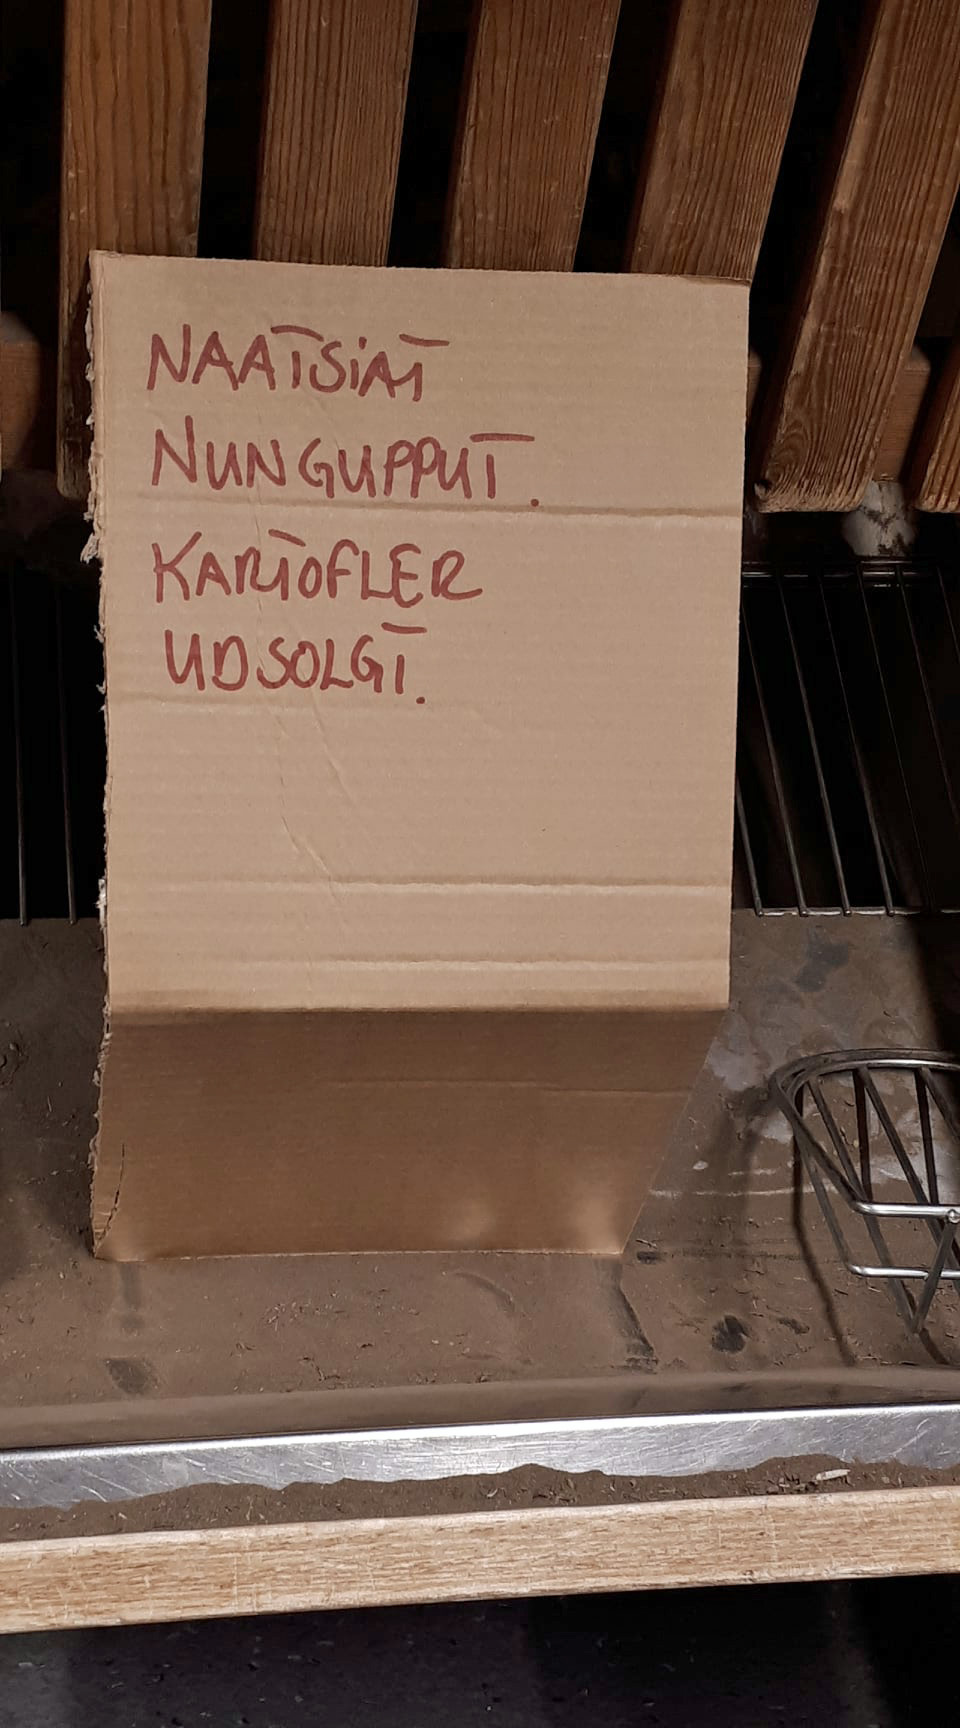 NAATSiAT
NUNGUPPUT.
KARTOFLER
UDSOLGT.